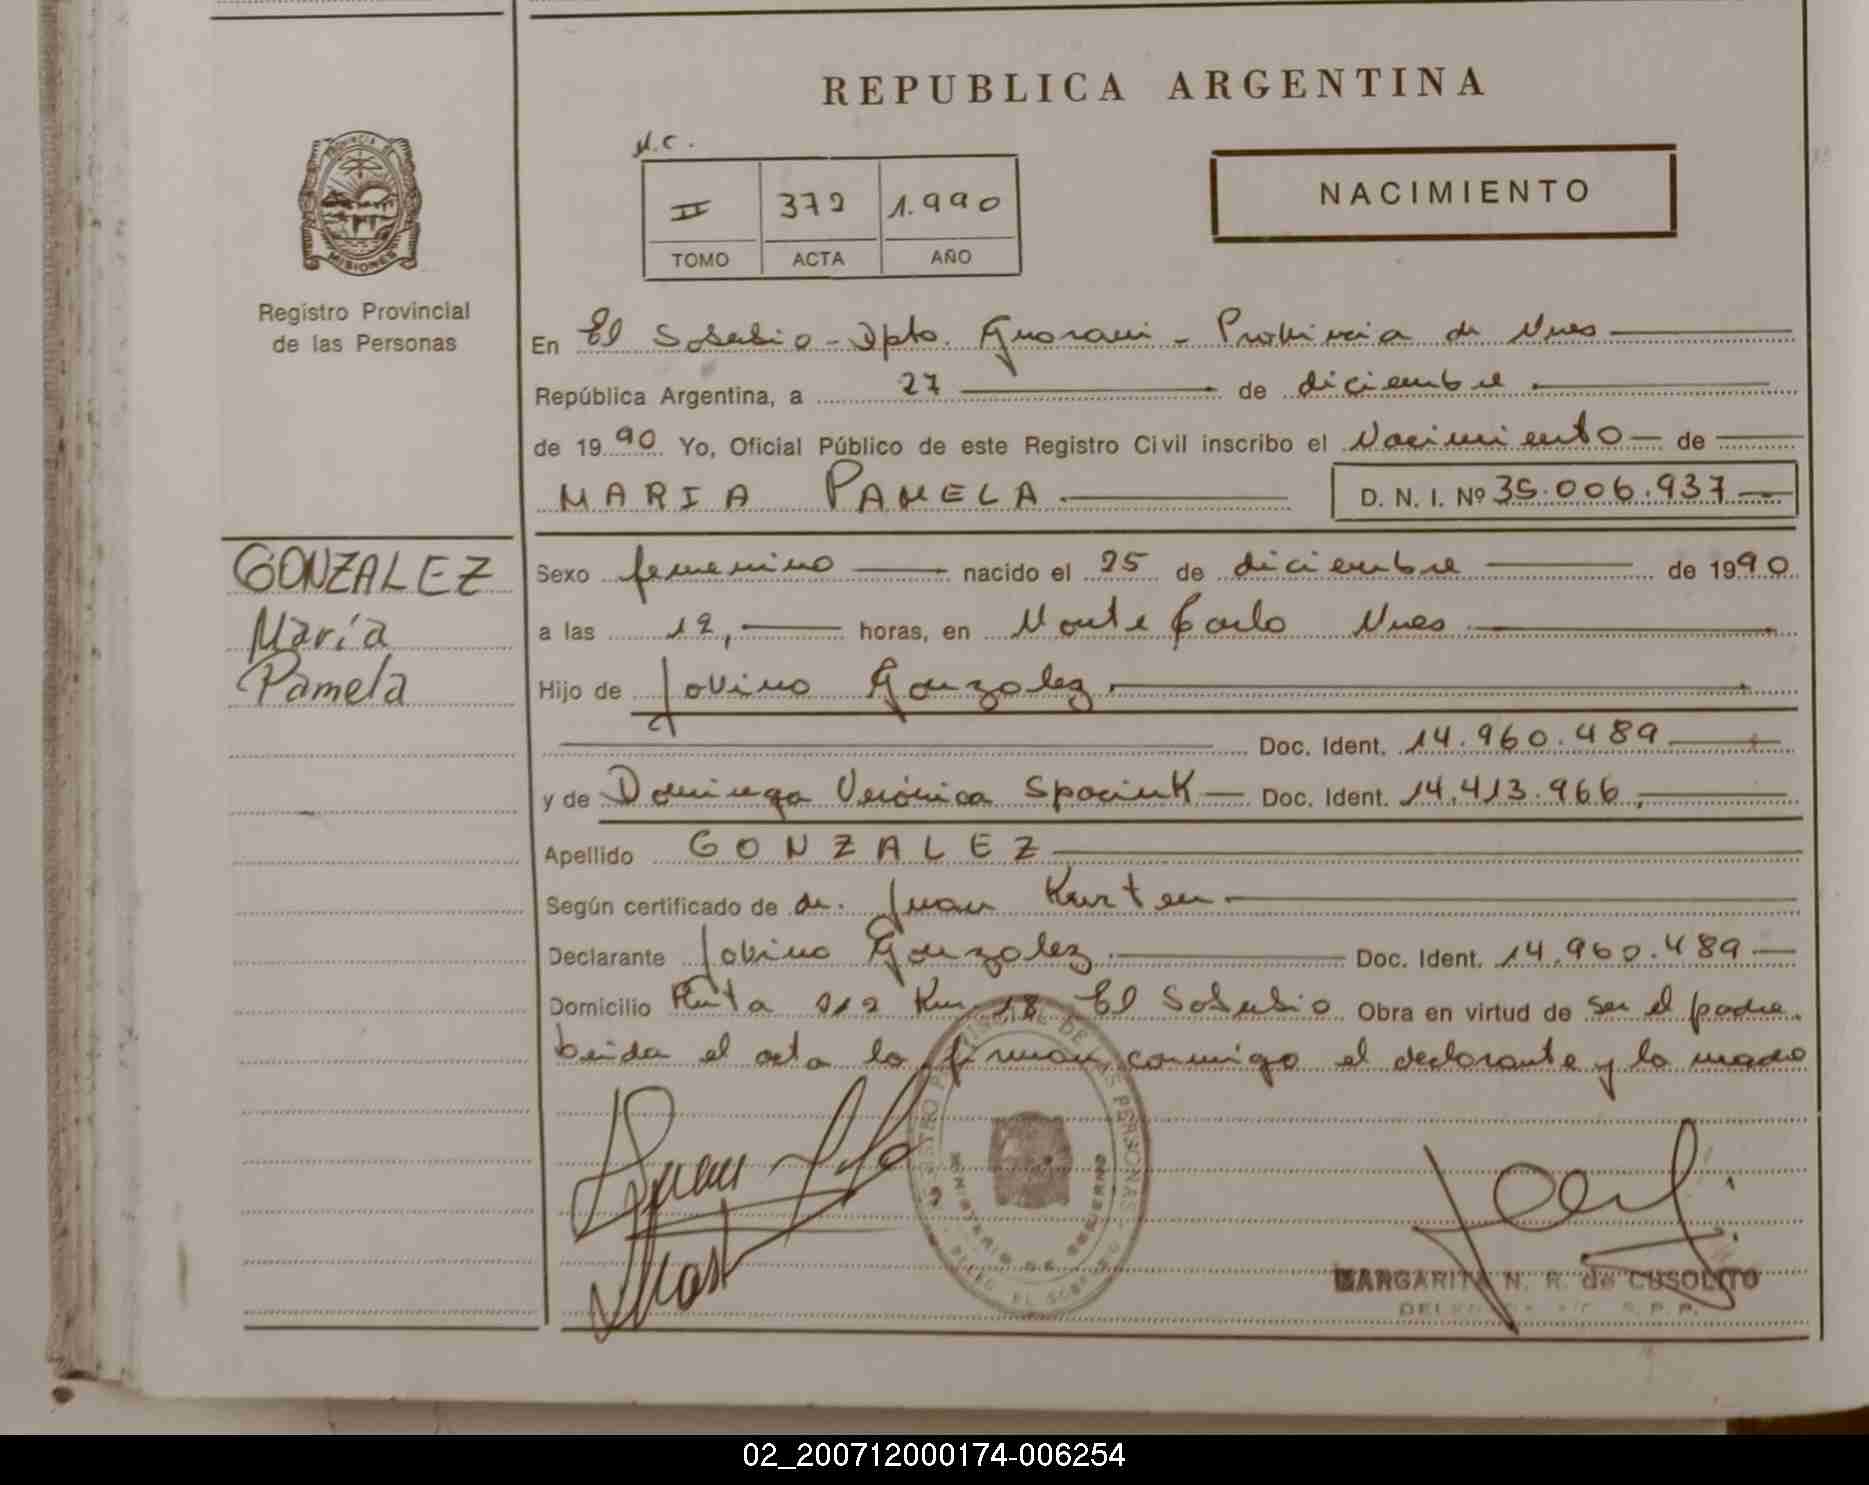 REPUBLICA ARGENTINA
PROVINCIA DE
MISIONES
Registro Provincial
de las Personas
N.C.
II 372 1.990
TOMO ACTA AÑO
NACIMIENTO
En El Soberbio - Dpto. Guarani - Provincia de Mnes
República Argentina, a 27 de diciembre
de 1990 Yo, Oficial Público de este Registro Civil inscribo el Nacimiento de
MARIA PAMELA D. N. I. Nº 35.006.937
GONZALEZ
María
Pamela
Sexo femenino nacido el 25 de diciembre de 1990
a las 12, horas, en Monte Carlo Mnes
Hijo de Jovino Gonzalez
Doc. Ident. 14.960.489
y de Dominga Verónica Spaciuk Doc. Ident. 14.413.966
Apellido GONZALEZ
Según certificado de dr. Juan Kurten
Declarante Jovino Gonzalez Doc. Ident. 14.960.489
Domicilio Ruta 212 Km. 18 El Soberbio Obra en virtud de ser el padre.
Leida el acta la firman conmigo el declarante y la madre
REGISTRO PROVINCIAL DE LAS PERSONAS
MINISTERIO DE GOBIERNO
DELEG. EL SOBERBIO
MARGARITA N. R. de CUSOLITO
R. P. P.
02_200712000174-006254